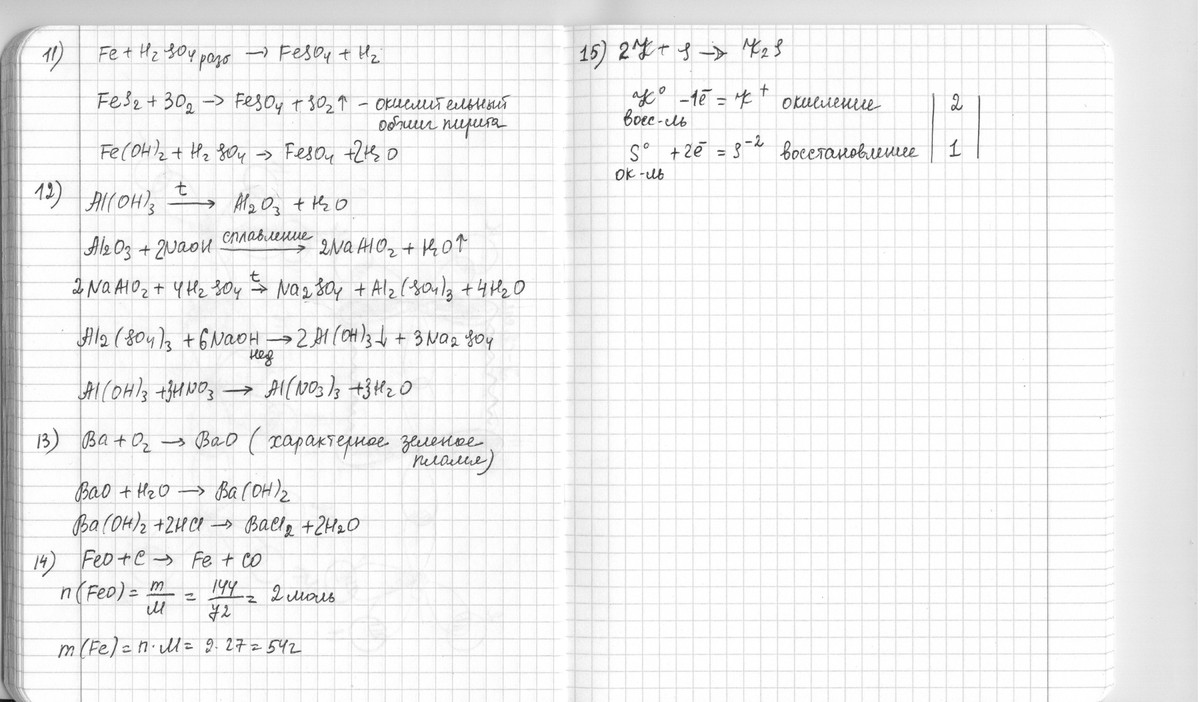 11) Fe + H₂SO₄ разб → FeSO₄ + H₂
FeS₂ + 3O₂ → FeSO₄ + SO₂↑ – окислительный
обжиг пирита
Fe(OH)₂ + H₂SO₄ → FeSO₄ + 2H₂O
12) Al(OH)₃ t→ Al₂O₃ + H₂O
Al₂O₃ + 2NaOH сплавление→ 2NaAlO₂ + H₂O↑
2NaAlO₂ + 4H₂SO₄ t→ Na₂SO₄ + Al₂(SO₄)₃ + 4H₂O
Al₂(SO₄)₃ + 6NaOH нед → 2Al(OH)₃↓ + 3Na₂SO₄
Al(OH)₃ + 3HNO₃ → Al(NO₃)₃ + 3H₂O
13) Ba + O₂ → BaO ( характерное зеленое
пламя)
BaO + H₂O → Ba(OH)₂
Ba(OH)₂ + 2HCl → BaCl₂ + 2H₂O
14) FeO + C → Fe + CO
n(FeO) = m/M = 144/72 = 2 моль
m(Fe) = n·M = 2·27 = 54г
15) 2K + S → K₂S
K⁰ -1ē = K⁺ окисление | 2 |
восс-ль
S⁰ +2ē = S⁻² восстановление | 1 |
ок-ль